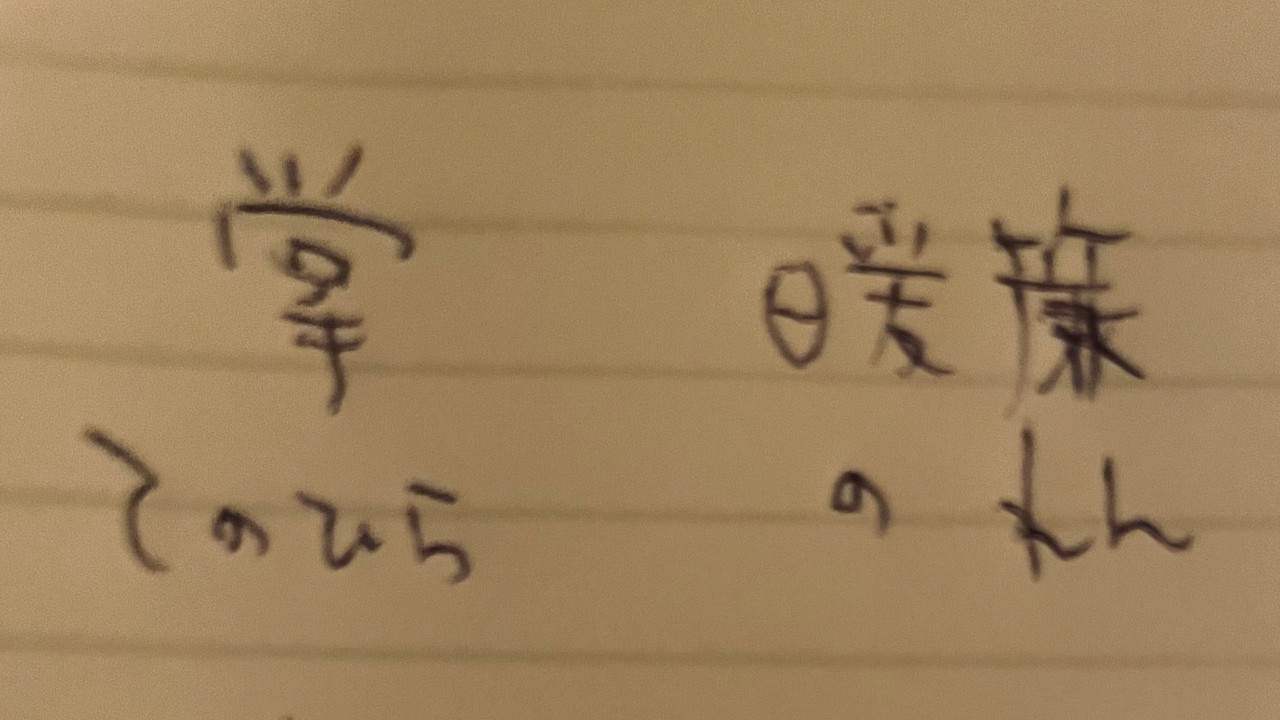 掌 暖簾
てのひら のれん